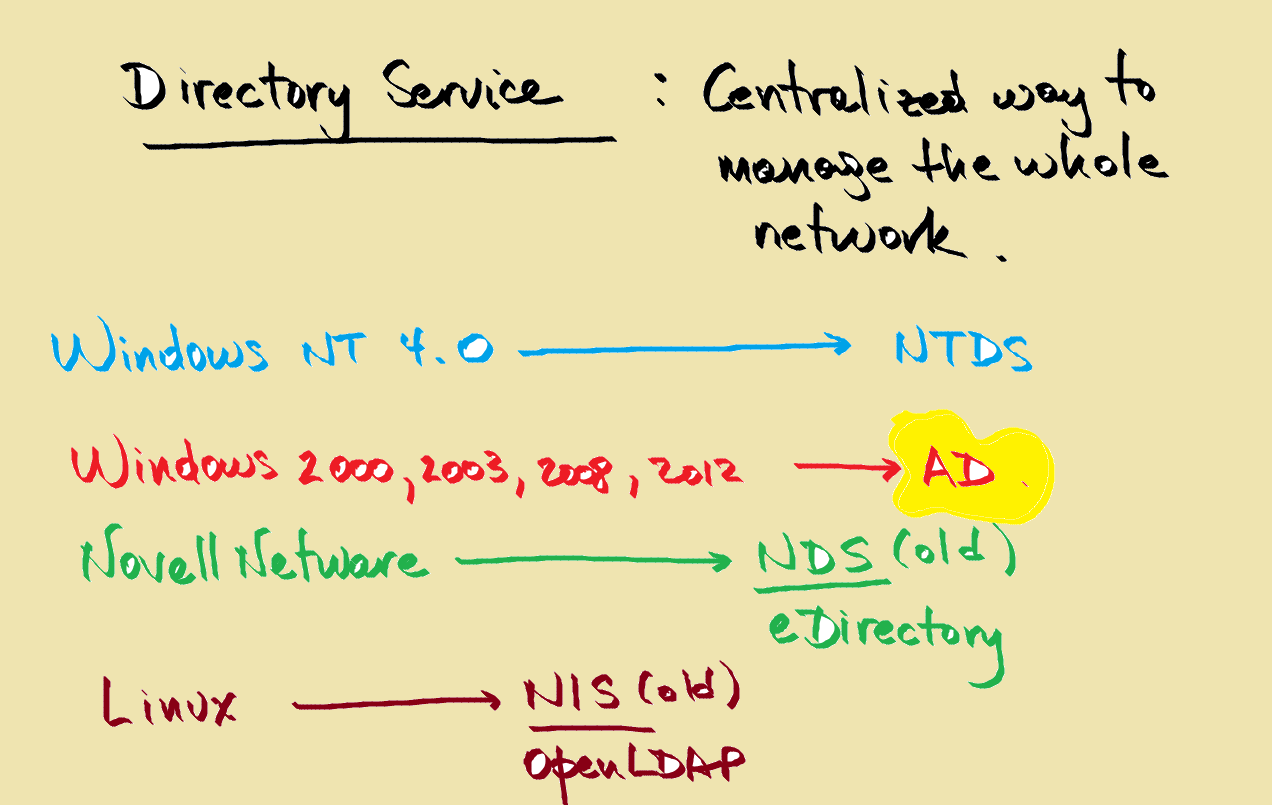 Directory Service : Centralized way to
manage the whole
network.
Windows NT 4.0 → NTDS
Windows 2000, 2003, 2008, 2012 → AD.
Novell Netware → NDS (old)
eDirectory
Linux → NIS (old)
OpenLDAP